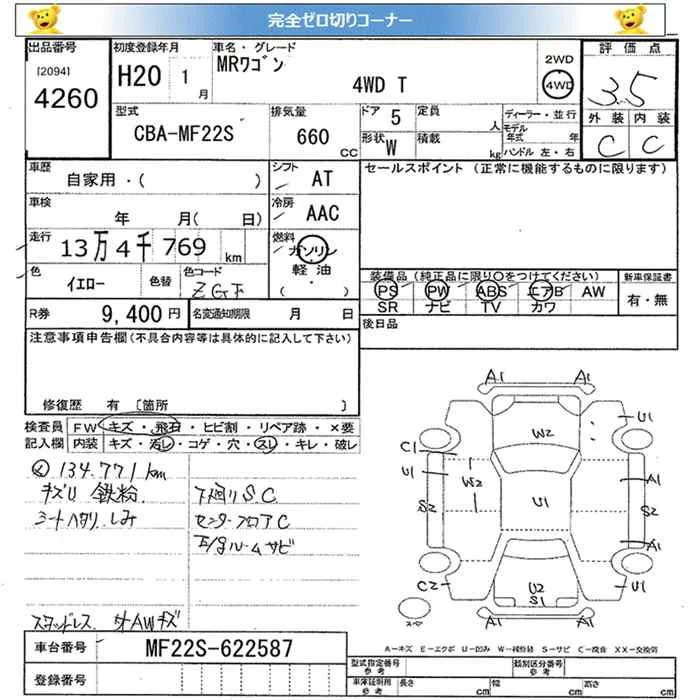 完全ゼロ切りコーナー
出品番号
[2094]
4260
初度登録年月
H20 1月
車名・グレード
MRワゴン
4WD T
2WD
4WD
評価点
3.5
外装 内装
C C
型式
CBA-MF22S
排気量
660 CC
ドア 5
定員 人
形状 W
積載 kg
ディーラー・並行
モデル年式 年
ハンドル 左・右
車歴
自家用・( )
シフト
AT
セールスポイント (正常に機能するものに限ります)
車検
年 月( 日)
冷房
AAC
走行
13万4千769 km
燃料
ガソリン
軽油
( )
色
イエロー
色替
色コード
装備品(純正品に限り〇をつけてください)
PS PW ABS エアB AW
SR ナビ TV カワ
新車保証書
有・無
R券
9,400円
名変通知期限 月 日
後日品
注意事項申告欄(不具合内容等は具体的に記入して下さい)
修復歴 有 [箇所 ]
検査員記入欄
FW キズ・飛石・ヒビ割・リペア跡・×要
内装 キズ・汚レ・コゲ・穴・スレ・キレ・破レ
134.771km
鉄粉
シートヘタリ しみ
下廻りSC
センターフロアC
スタッドレス 付AWキズ
A1 A1
U1
W2
C1
U1
W2
U1
A1
S2
S2
A1
C2
U2
S1
U1
A1 A1
A－キズ E－エクボ U－凹み W－補修跡 S－サビ C－腐食 XX－交換済
車台番号
MF22S-622587
登録番号
型式指定番号 参考
類別区分番号 参考
車庫証明用 参考
長さ cm
幅 cm
高さ cm